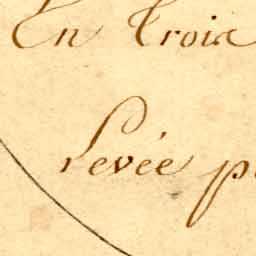 En Troix
Levée p